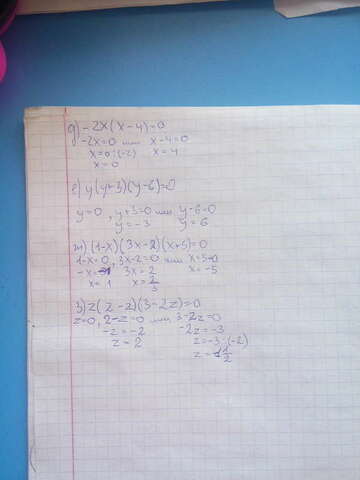 д) -2x(x-4)=0
-2x=0 или x-4=0
x=0:(-2) x=4
x=0
е) y(y+3)(y-6)=0
y=0, y+3=0 или y-6=0
y=-3 y=6
ж) (1-x)(3x-2)(x+5)=0
1-x=0, 3x-2=0 или x+5=0
-x=-1 3x=2 x=-5
x=1 x=2/3
з) z(2-z)(3-2z)=0
z=0, 2-z=0 или 3-2z=0
-z=-2 -2z=-3
z=2 z=-3:(-2)
z=1 1/2